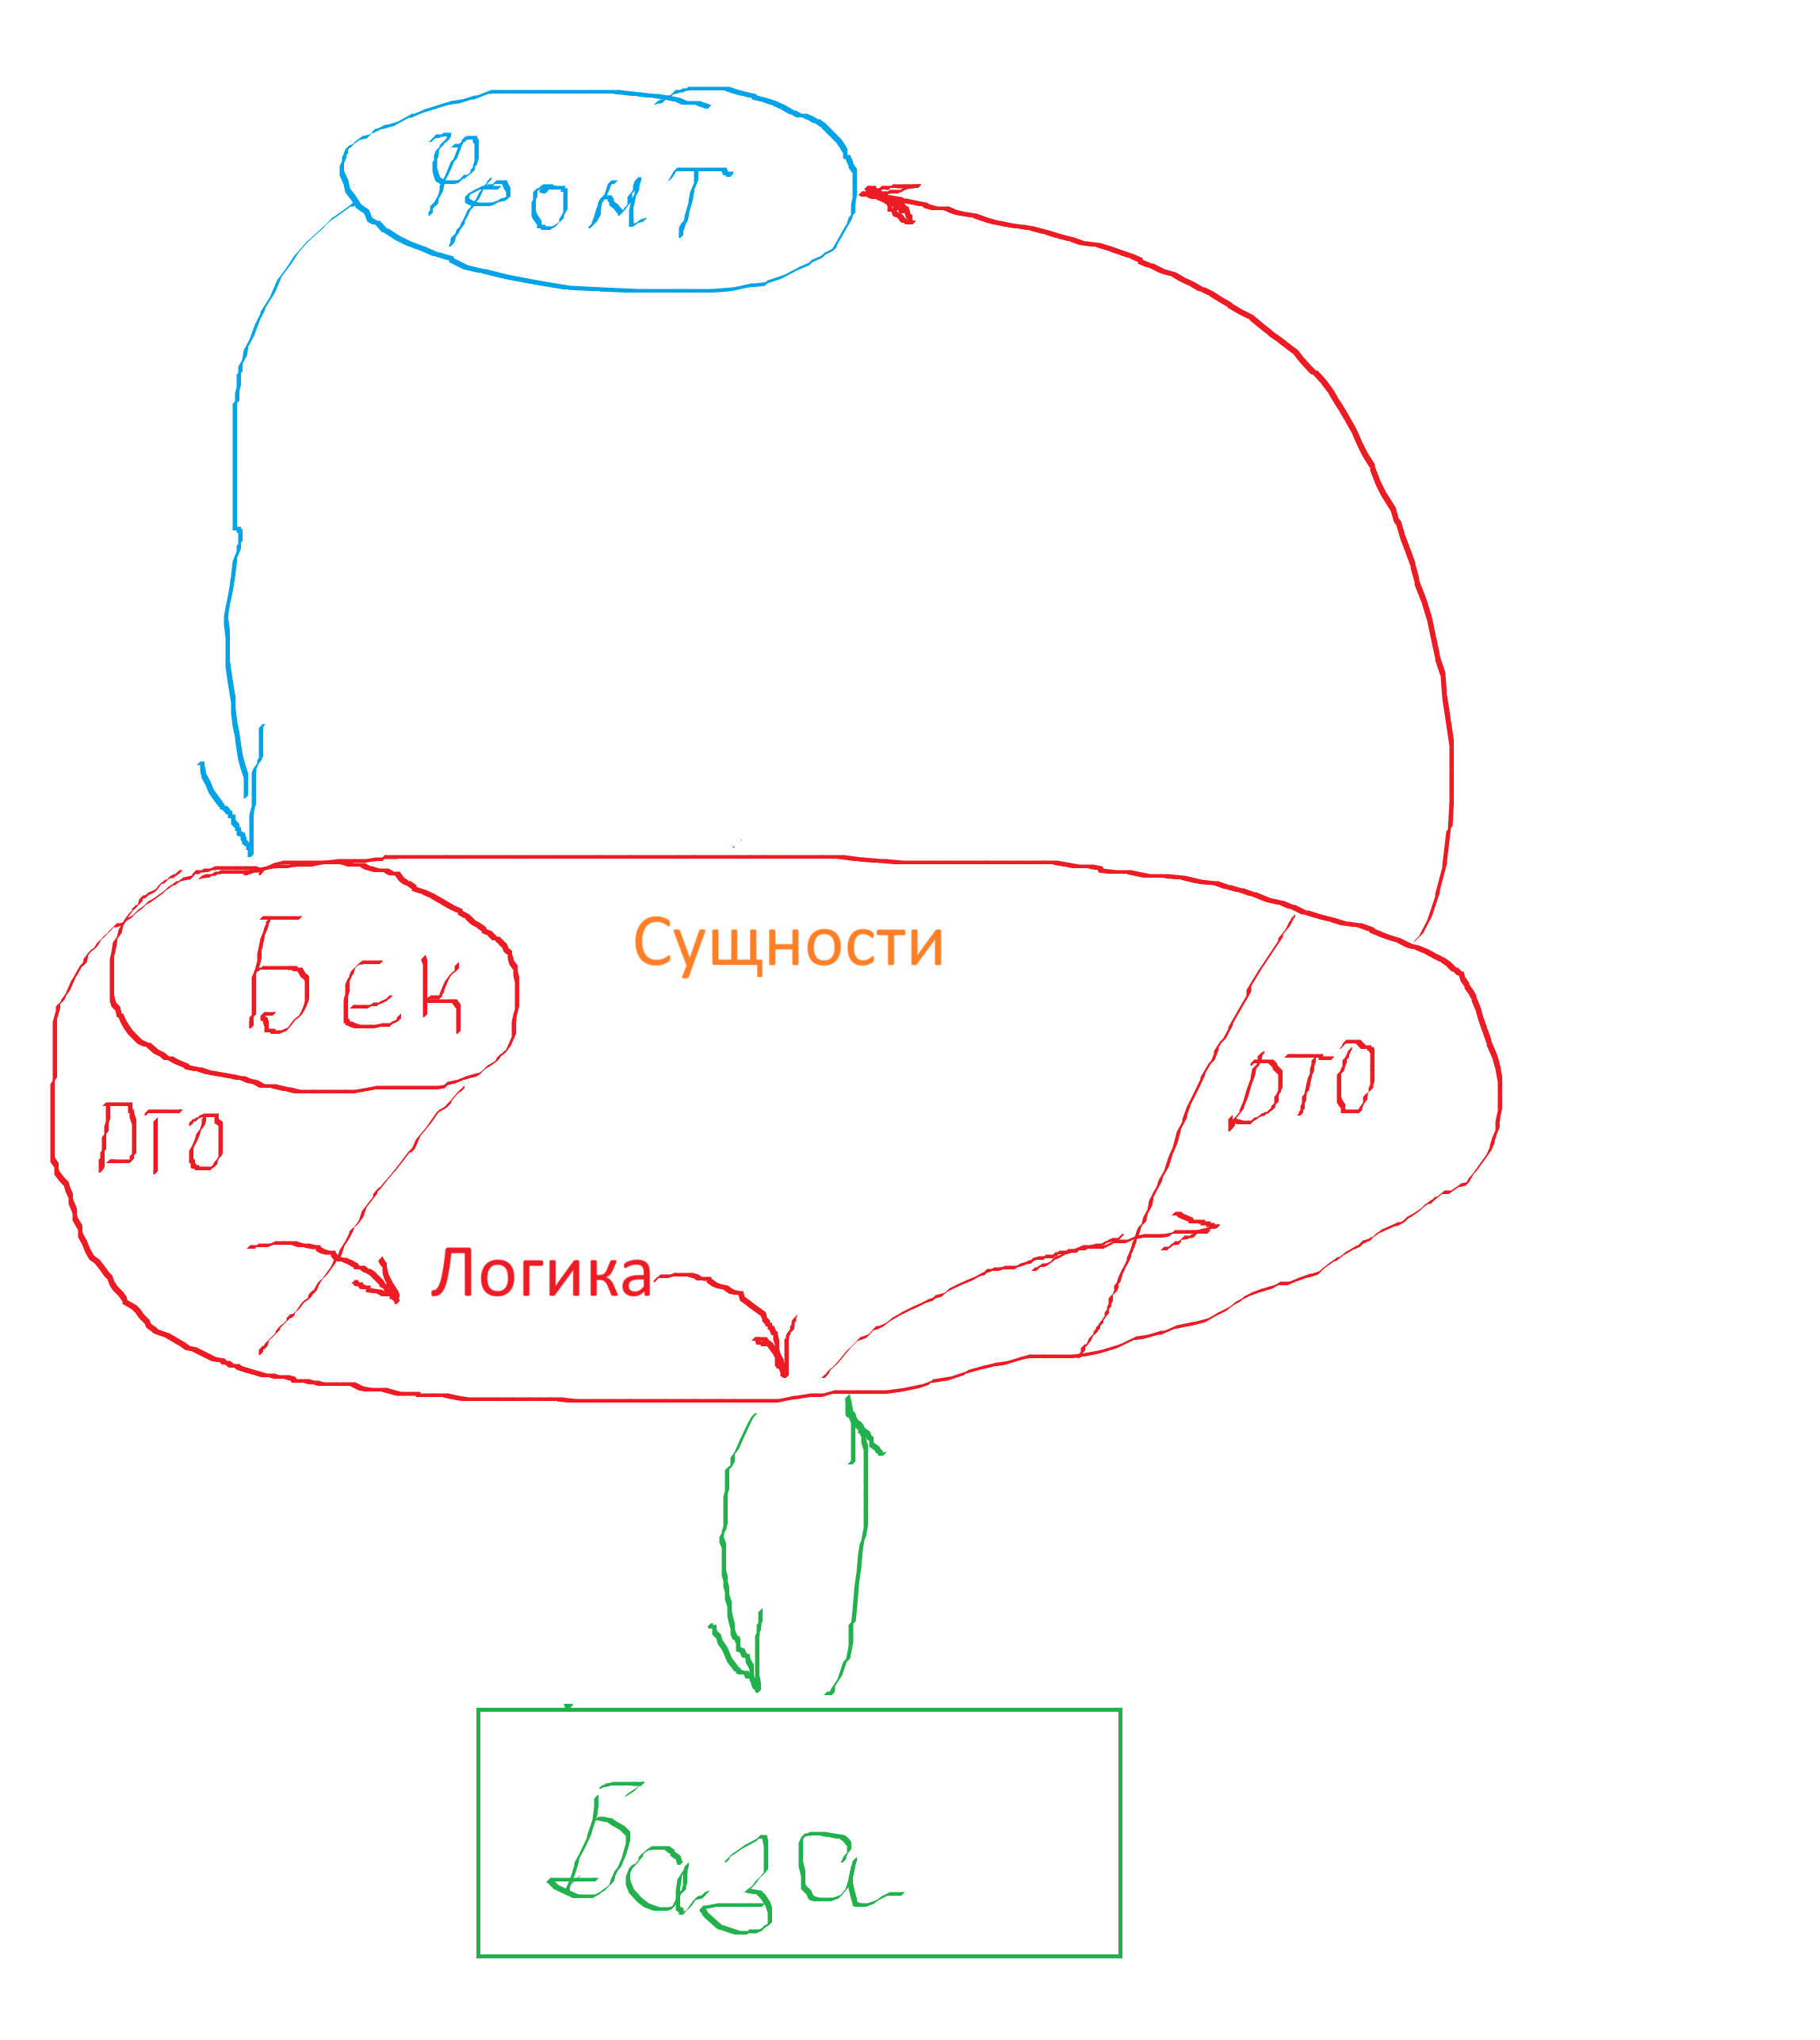 Фронт
Бек
Сущности
DTO
DTO
Логика
База